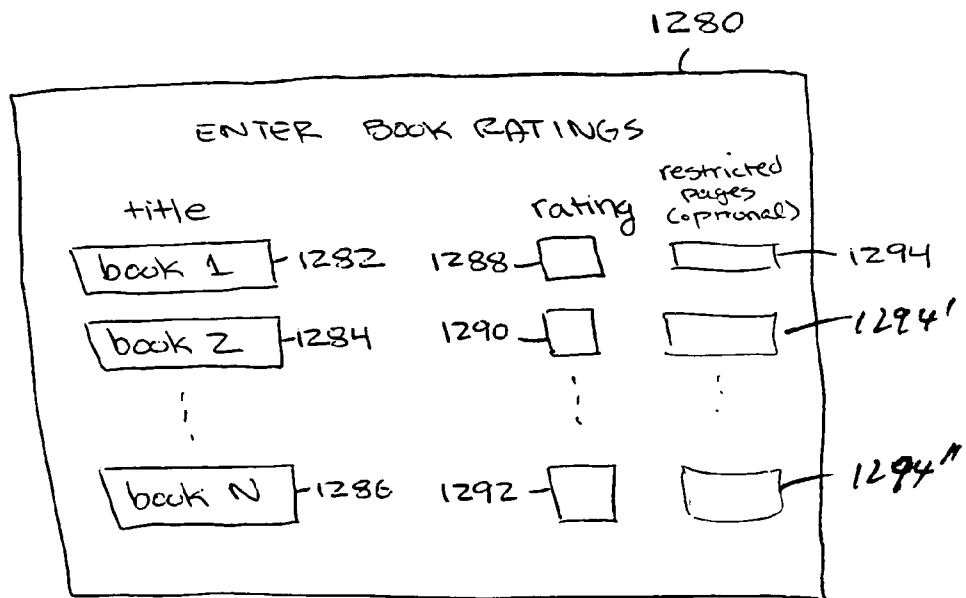 1280
ENTER BOOK RATINGS
title rating restricted pages (optional)
book 1 1282 1288 1294
book 2 1284 1290 1294'
book N 1286 1292 1294"